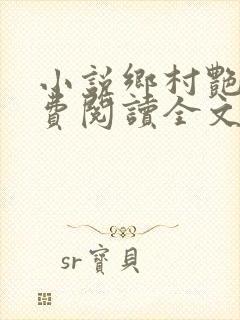 小說鄉村艷
費閱讀全文
sr寶貝